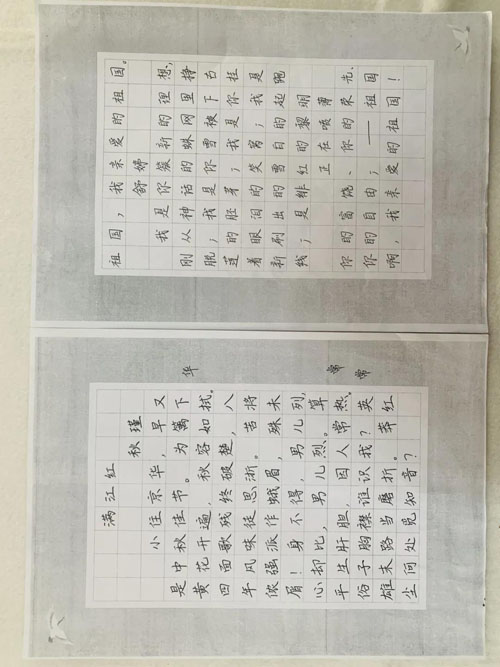 满江红
秋瑾
小住京华，早又
是中秋佳节。为篱下
黄花开遍，秋容如拭。
四面歌残终破楚，八
年风味徒思浙。苦将
侬强派作蛾眉，殊未
屑！身不得，男儿列，
心却比，男儿烈。算
平生肝胆，因人常热。
俗子胸襟谁识我？英
雄末路当磨折。莽红
尘何处觅知音？
华
常常
祖国，我亲爱的祖国。
舒婷
我是你簇新的理想，
刚从神话的蛛网里挣
脱；我是你雪被下古
莲的胚芽；我是你挂
着眼的笑窝；我是
新刷出的雪白的起跑
线；是绯红的黎明
正在喷薄
你的富饶、你的荣光、
你的自由；——祖国
啊，我亲爱的祖国！